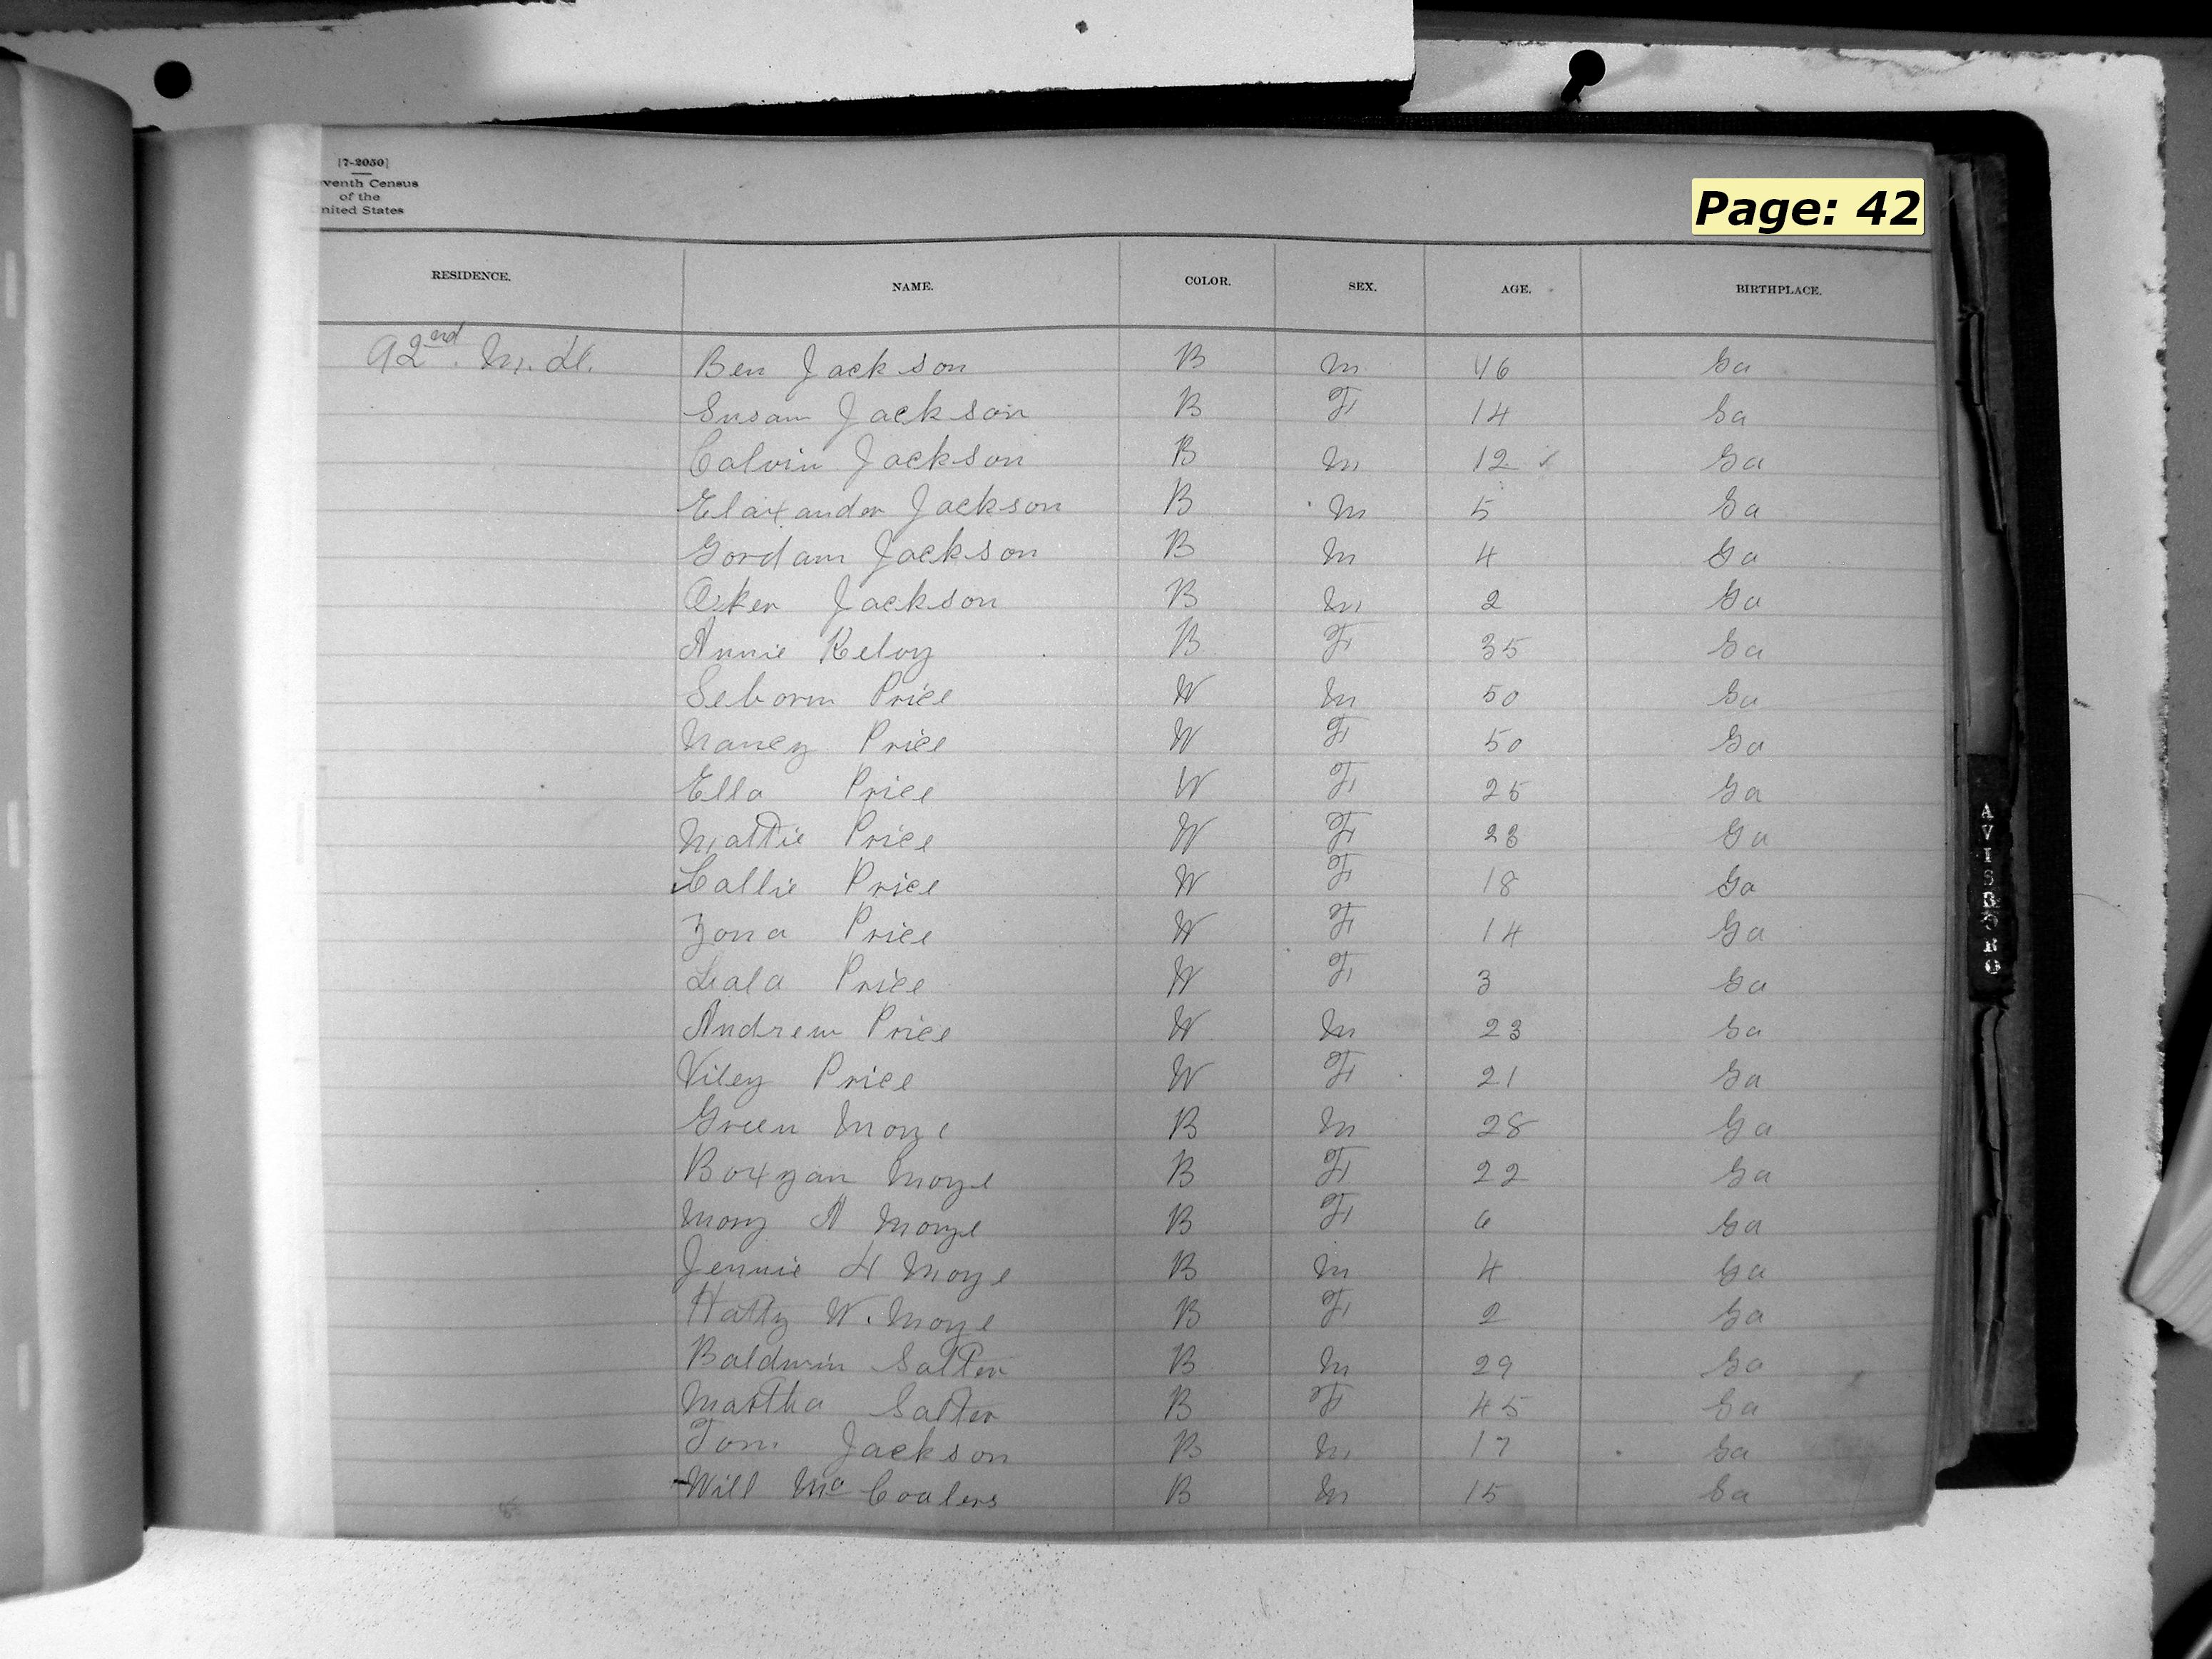 [7-2050]
venth Census
of the
nited States
Page: 42
RESIDENCE. NAME. COLOR. SEX. AGE. BIRTHPLACE.
92nd. M. D. Ben Jackson B M 46 Ga
Susam Jackson B F 14 Ga
Calvin Jackson B M 12 ✓ Ga
Elaxander Jackson B M 5 Ga
Gordam Jackson B M 4 Ga
Osker Jackson B M 2 Ga
Annie Kelvy B F 35 Ga
Seborm Price W M 50 Ga
Nancy Price W F 50 Ga
Ella Price W F 25 Ga
Mattie Price W F 23 Ga
Callie Price W F 18 Ga
Zona Price W F 14 Ga
Lala Price W F 3 Ga
Andrew Price W M 23 Ga
Viley Price W F 21 Ga
Green Moye B M 28 Ga
Boxyan Moye B F 22 Ga
Mary A Moye B F 6 Ga
Jennie H Moye B M 4 Ga
Hatty W. Moye B F 2 Ga
Baldwin Salter B M 29 Ga
Martha Salter B F 45 Ga
Tom Jackson B M 17 Ga
Will Mc Coalers B M 15 Ga
AVISBORO